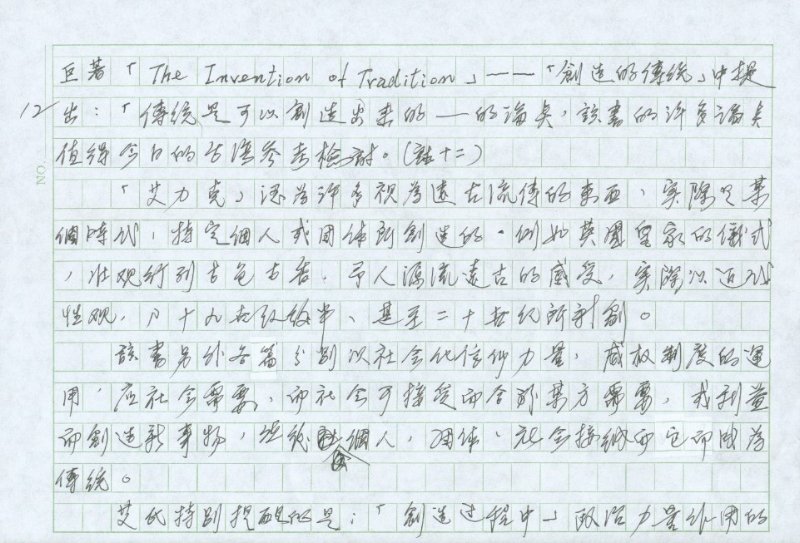 巨著「The Invention of Tradition」——「創造的傳統」中提
12 出:「傳統是可以創造出來的——的論矣,該書的許多論矣
值得今日的方法參考檢討。(註十二)
「艾力克」認為許多視為遠古流傳的東西,實際是某
個時代,特定個人或團体所創造的。例如英國皇家的儀式
,壯观行列古色古香,予人源流遠古的感受,實際以近代
性观,乃十九世紀後半、甚至二十世紀所新創。
該書另外各篇分別以社会化信仰力量,威权制度的運
用,应社会需要,而社会可接受而合於某方需要,或利益
而創造新事物,經統個人,团体、社会接纳而它而成為
傳統。
艾氏特別提醒的是:「創造过程中」政治力量作用的
NO.